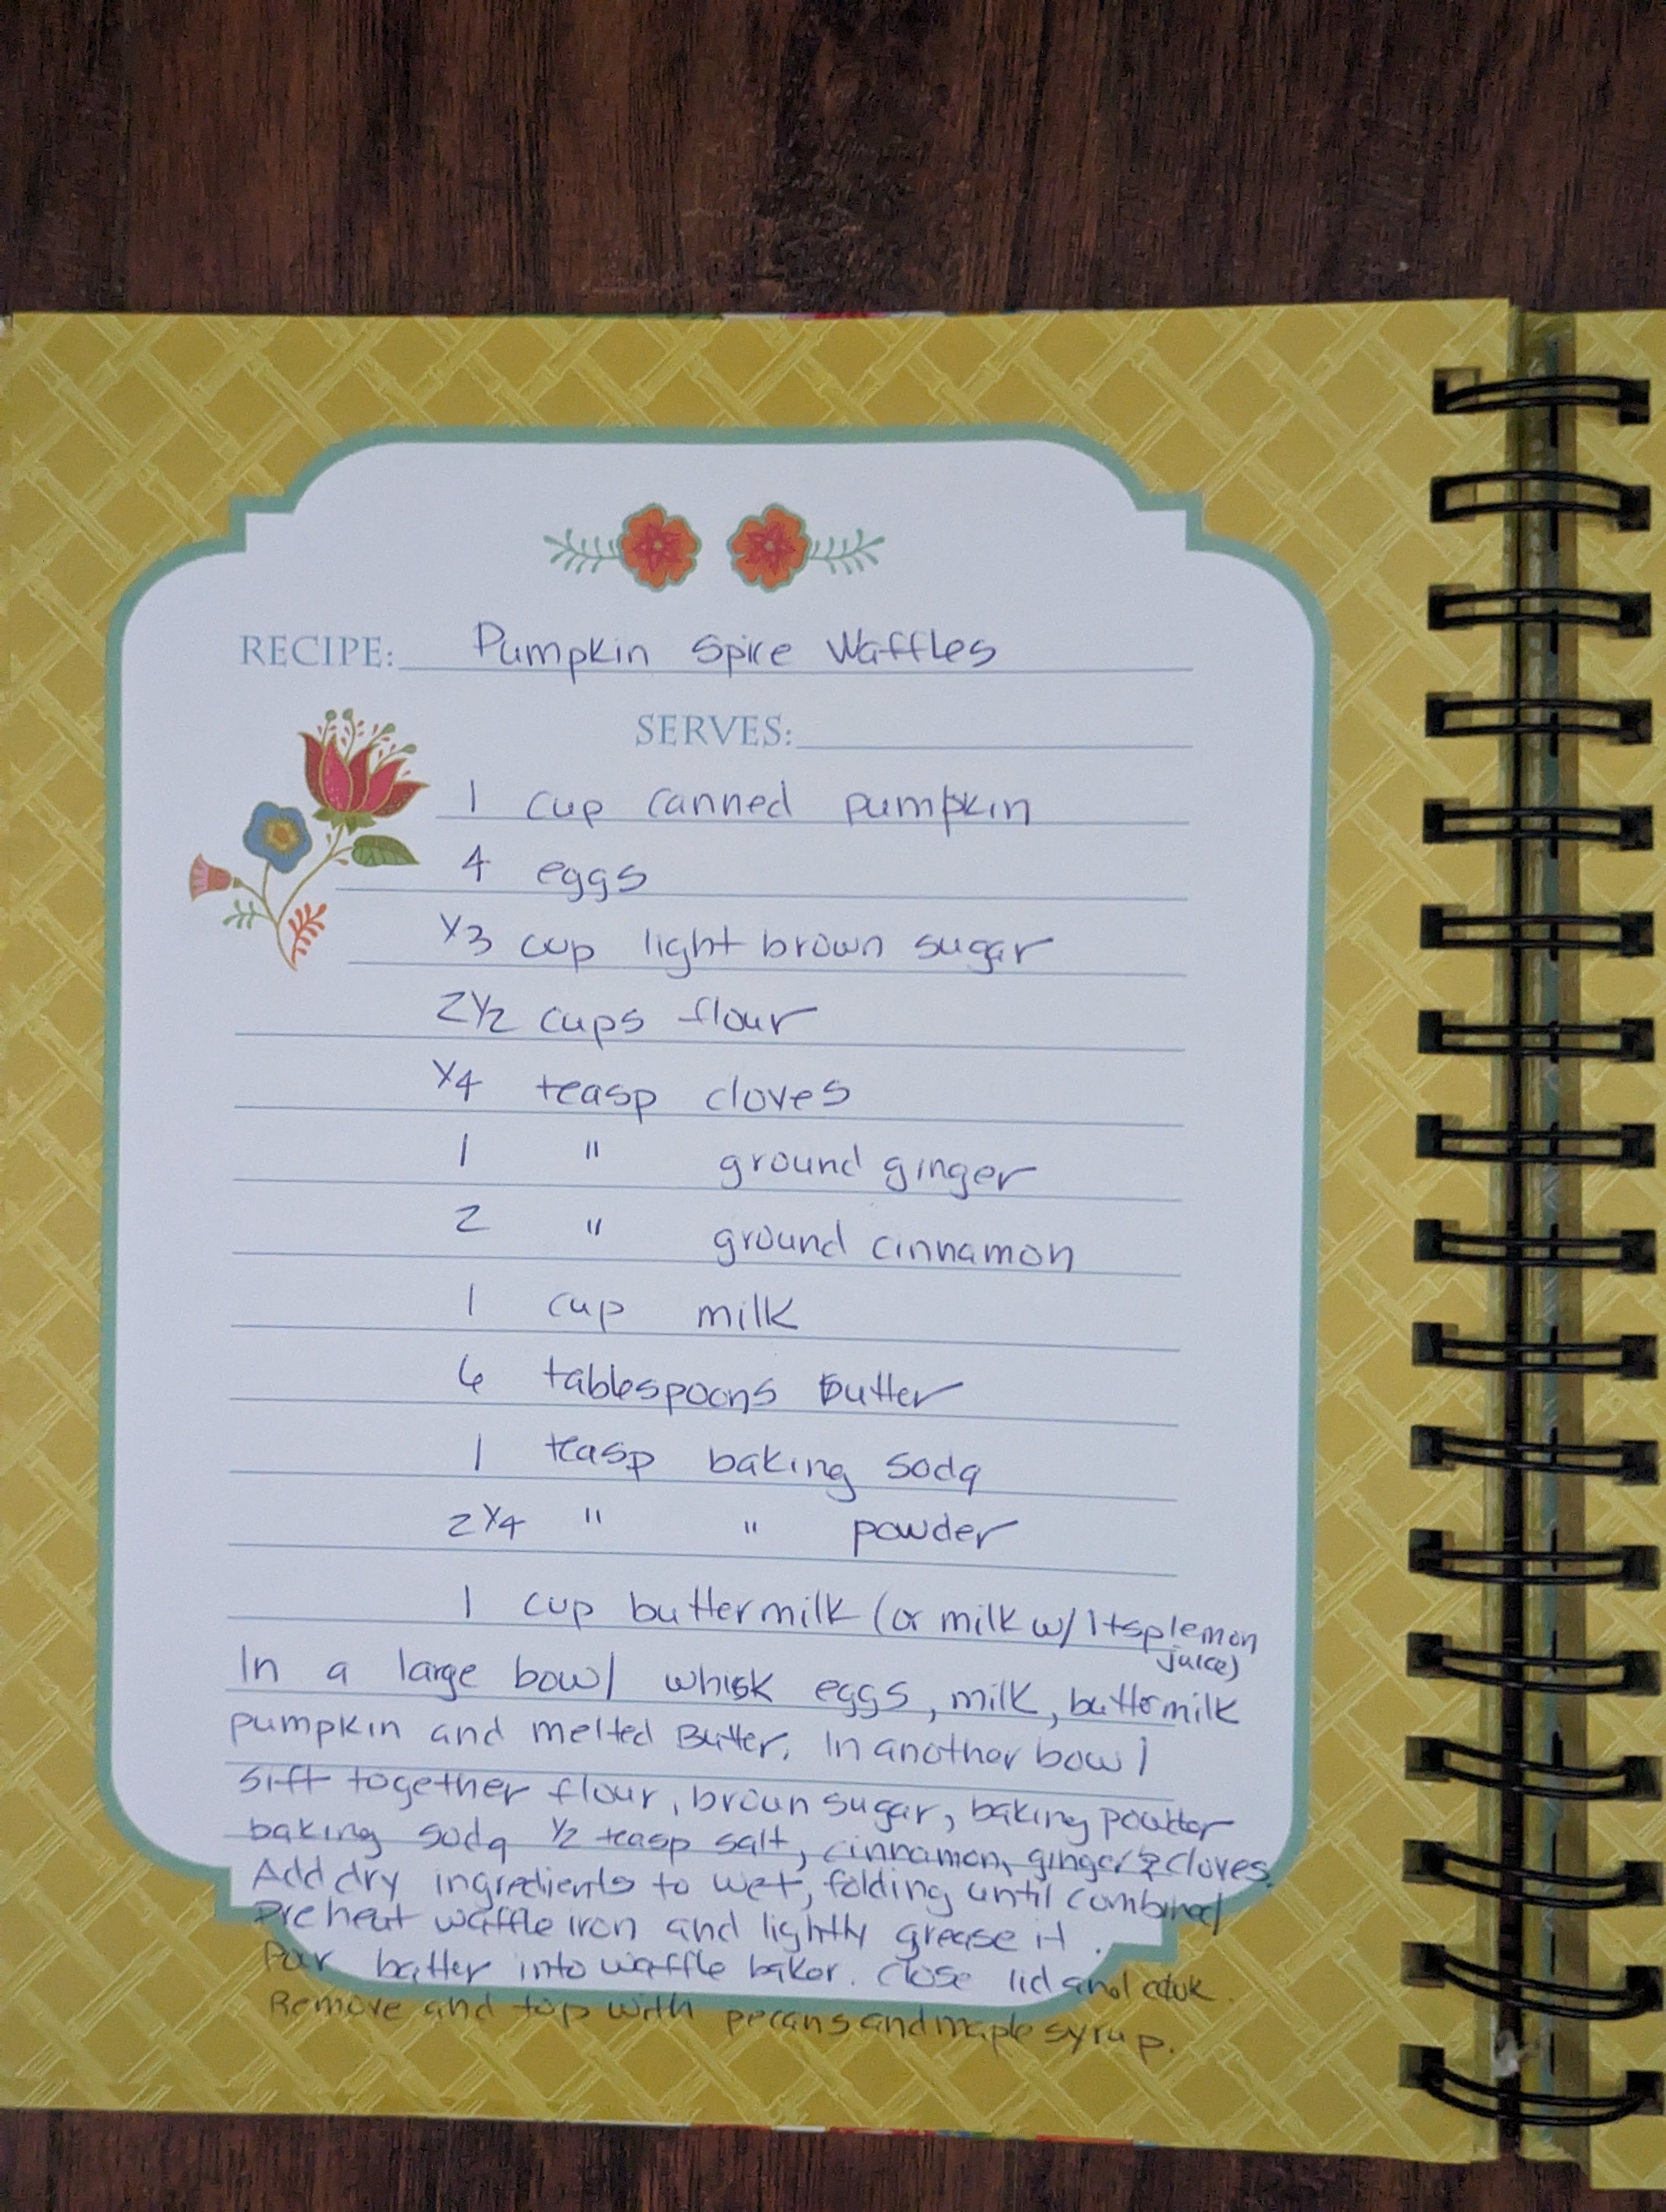 RECIPE: Pumpkin Spice Waffles
SERVES:
1 cup canned pumpkin
4 eggs
1/3 cup light brown sugar
2 1/2 cups flour
1/4 teasp cloves
1 " ground ginger
2 " ground cinnamon
1 cup milk
6 tablespoons butter
1 teasp baking soda
2 1/4 " " powder
1 cup buttermilk (or milk w/ 1 tsp lemon
juice)
In a large bowl whisk eggs, milk, buttermilk
pumpkin and melted Butter. In another bowl
sift together flour, brown sugar, baking powder
baking soda 1/2 teasp salt, cinnamon, ginger & cloves.
Add dry ingredients to wet, folding until combined
Preheat waffle iron and lightly grease it.
Pour batter into waffle baker. Close lid and cook.
Remove and top with pecans and maple syrup.